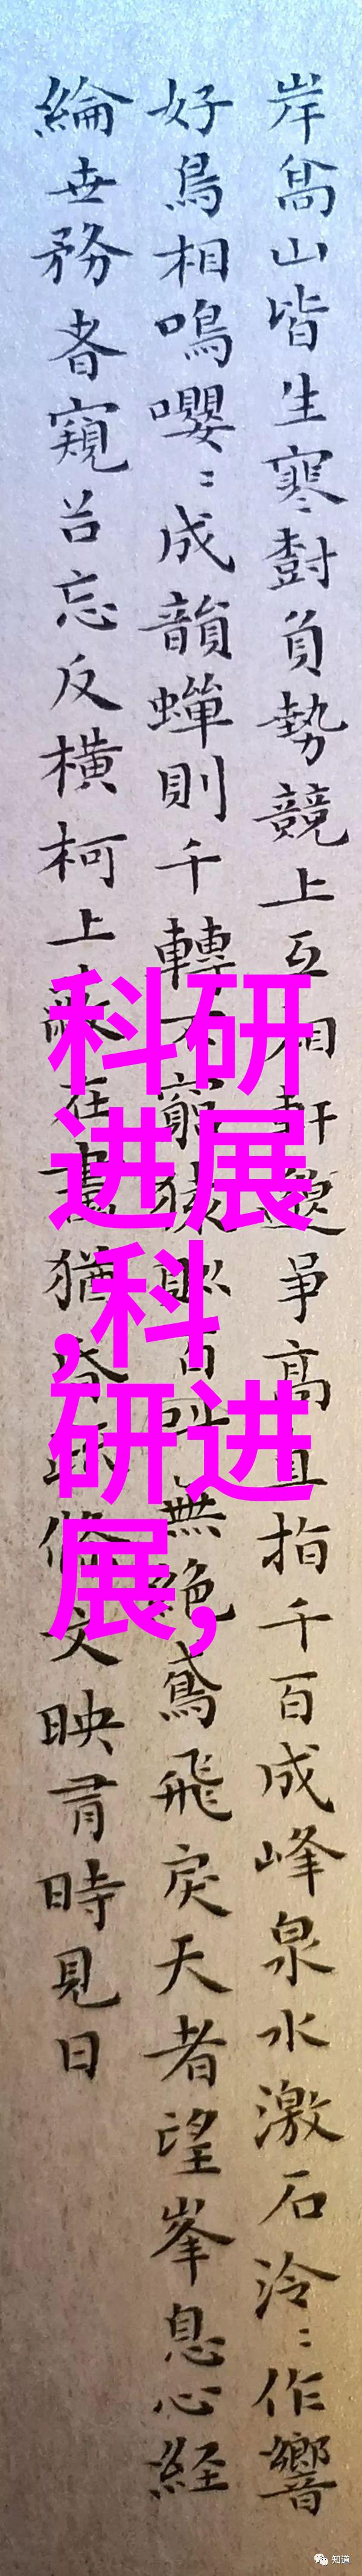 岸髙山皆生寒樹負勢競上互相軒邈爭高直指千百成峰泉水激石泠〻作響
好鳥相鳴嚶〻成韻蟬則千轉不窮猿則百叫無絶鳶飛戾天者望峯息心経
綸世務者窺谷忘反橫柯上蔽在晝猶昏疎條交映有時見日
科研
进展
,科
研进
展,
知道